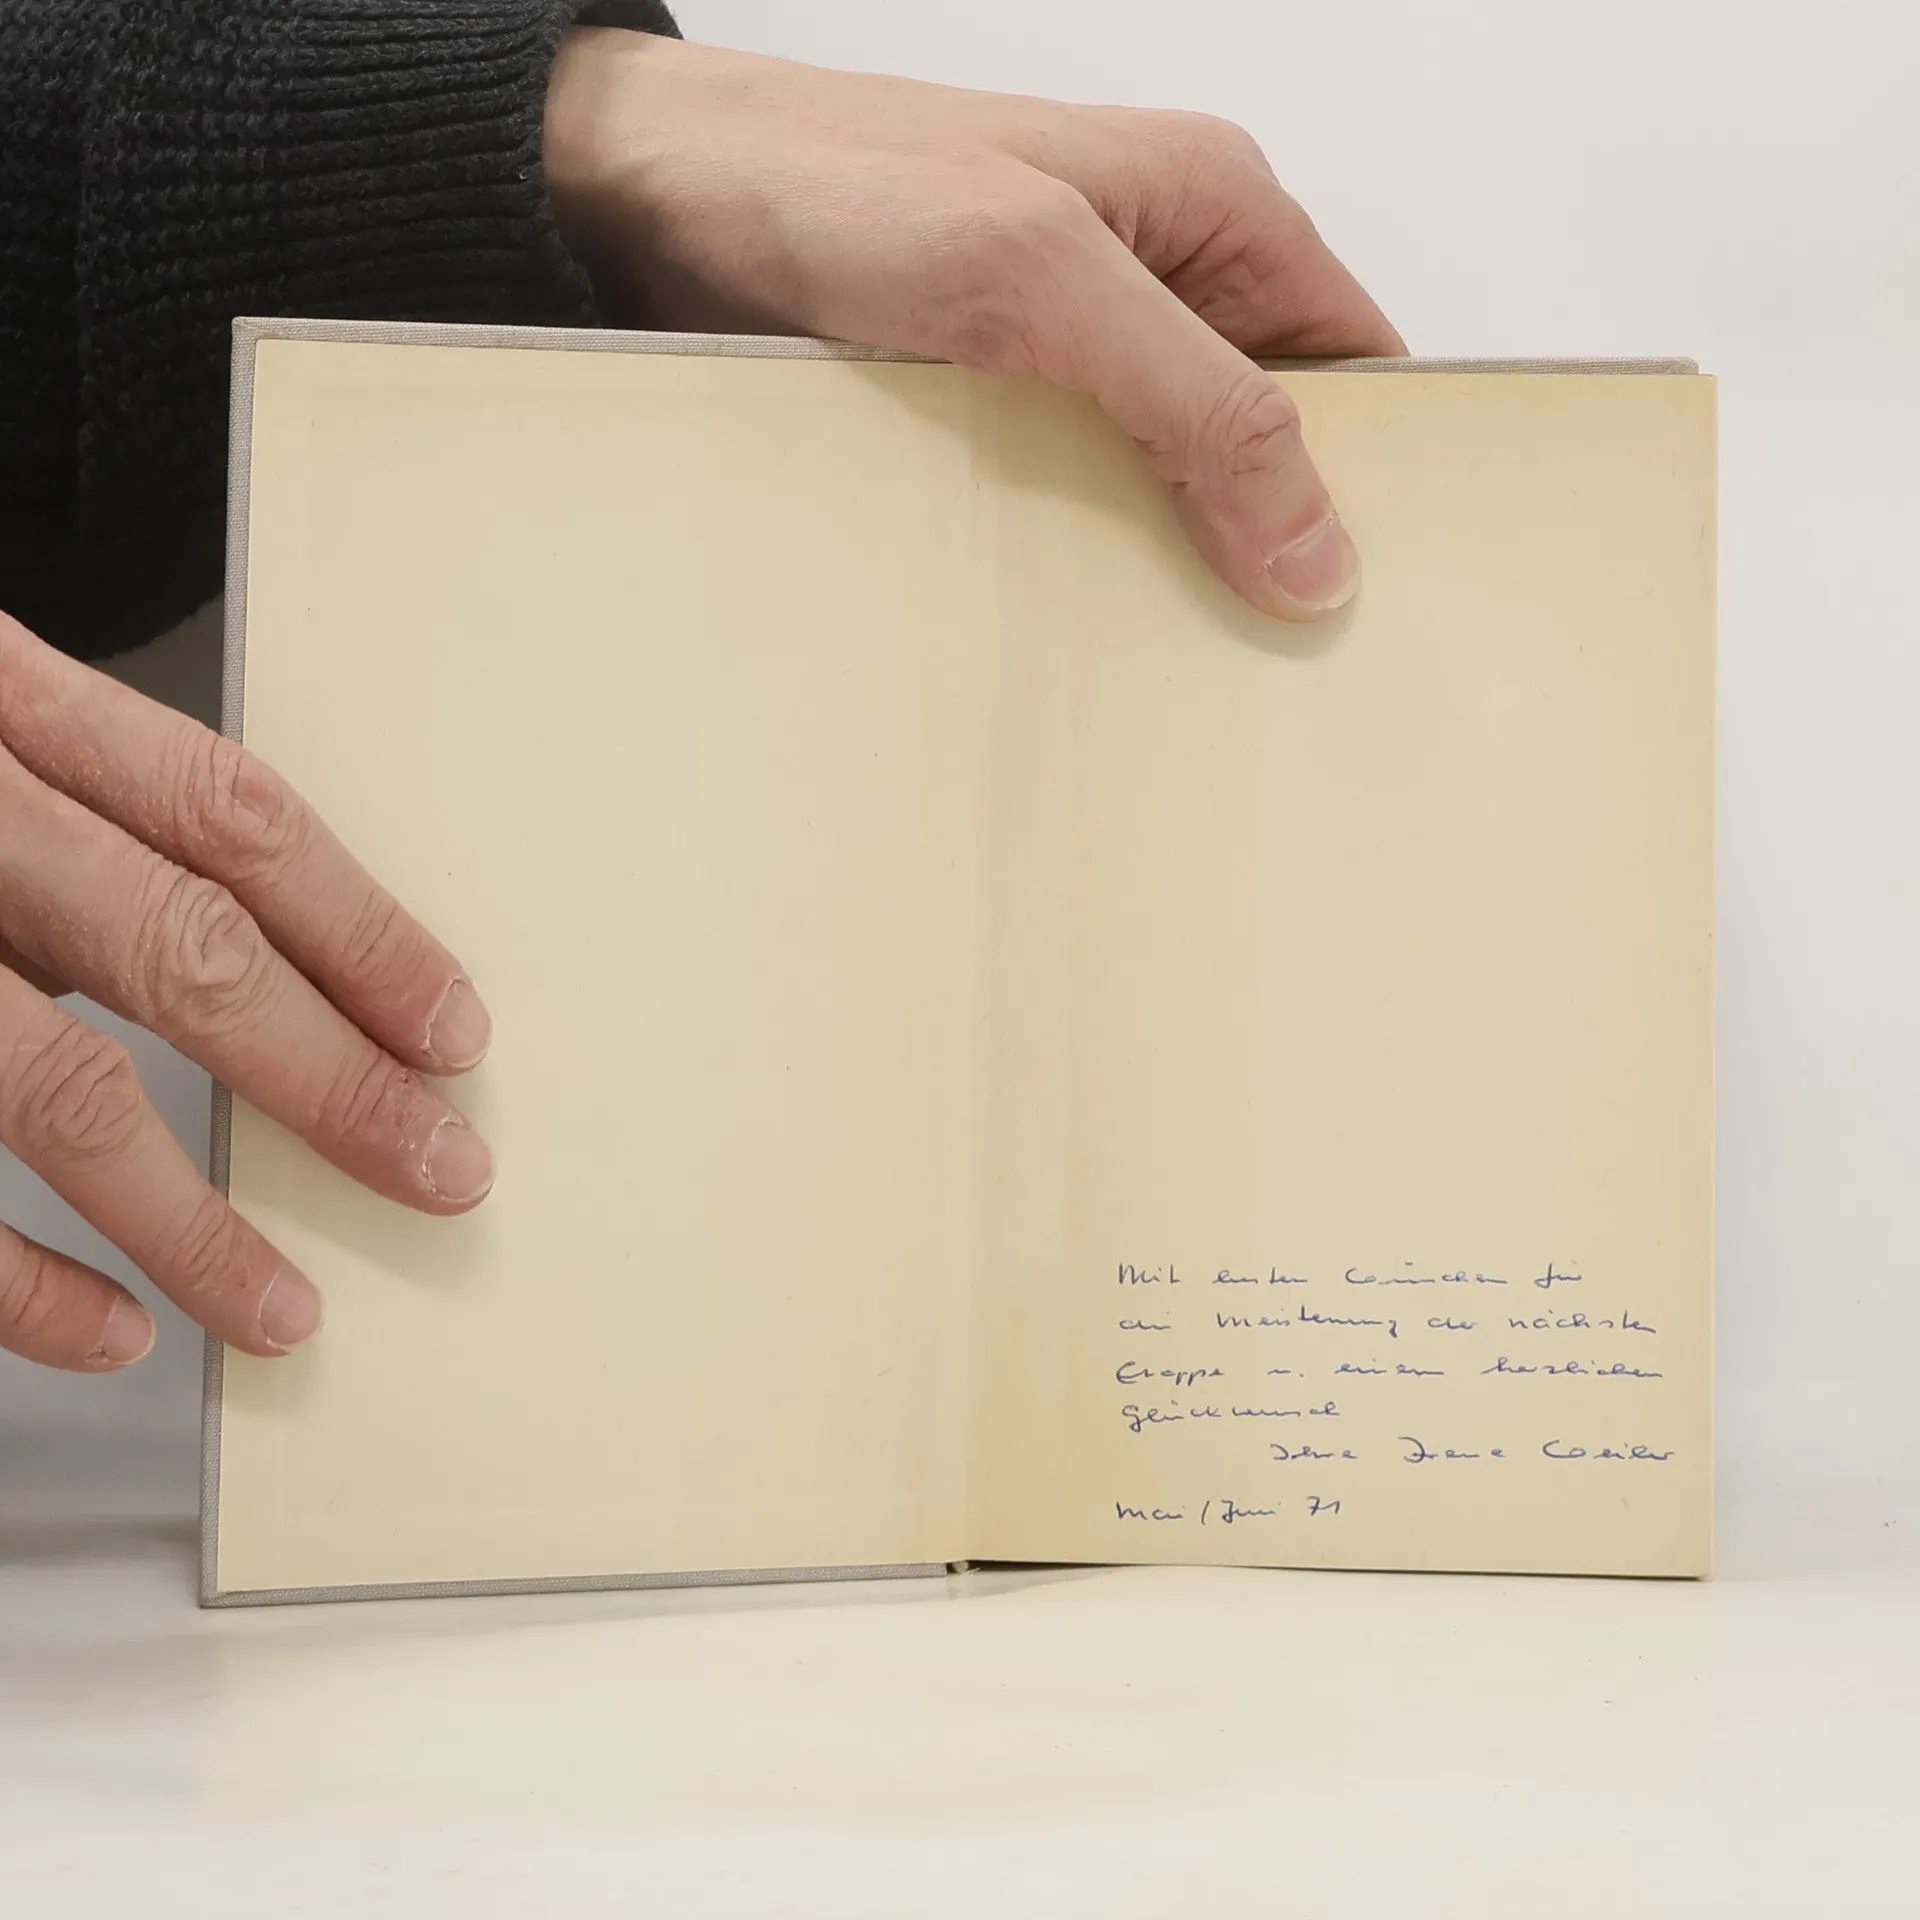 Mit besten Wünschen für
die Meisterung der nächsten
Etappe u. einem herzlichen
Glückwunsch
Ihre Irene Weiler
Mai / Juni 71